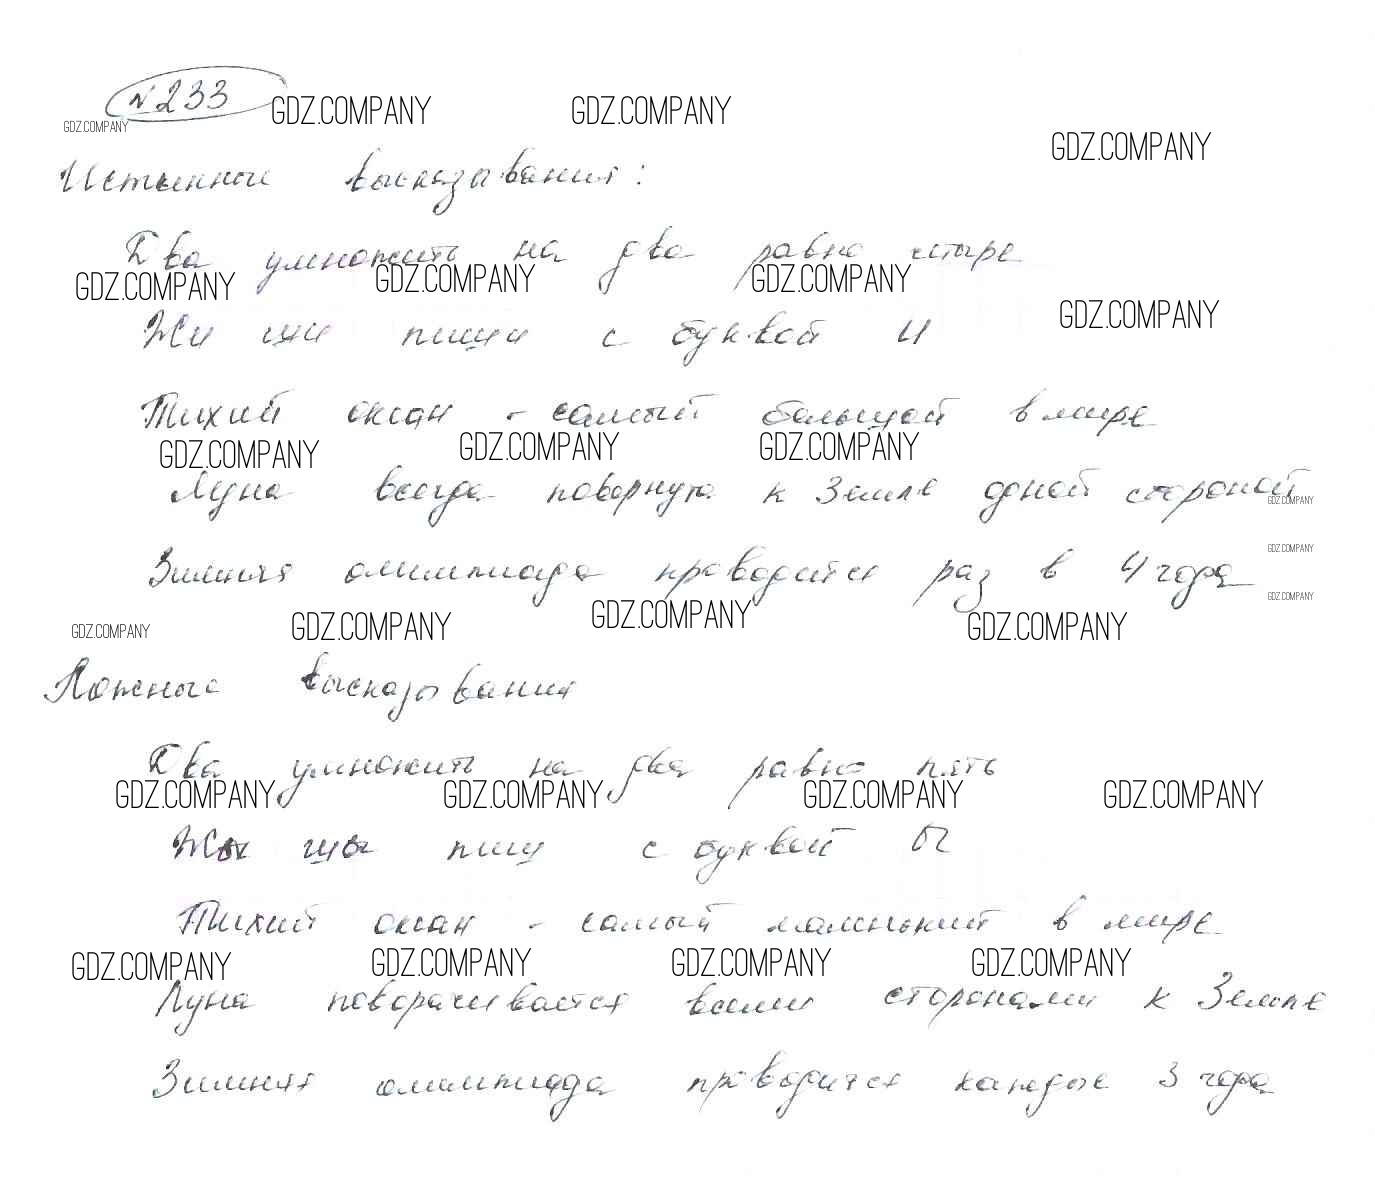 N 233
GDZ.COMPANY GDZ.COMPANY
GDZ.COMPANY
GDZ.COMPANY
Истинные высказывания:
Два умножить на два равно четыре
GDZ.COMPANY GDZ.COMPANY GDZ.COMPANY
GDZ.COMPANY
Жи ши пиши с буквой И
Тихий океан - самый большой в мире
GDZ.COMPANY GDZ.COMPANY GDZ.COMPANY
Луна всегда повернута к Земле одной стороной
GDZ.COMPANY
GDZ.COMPANY
Зимняя олимпиада проводится раз в 4 года
GDZ.COMPANY
GDZ.COMPANY GDZ.COMPANY GDZ.COMPANY GDZ.COMPANY
Ложные высказывания
Два умножить на два равно пять
GDZ.COMPANY GDZ.COMPANY GDZ.COMPANY GDZ.COMPANY
Жы шы пиш с буквой Ы
Тихий океан - самый маленький в мире
GDZ.COMPANY GDZ.COMPANY GDZ.COMPANY GDZ.COMPANY
Луна поворачивается всеми сторонами к Земле
Зимняя олимпиада проводится каждые 3 года